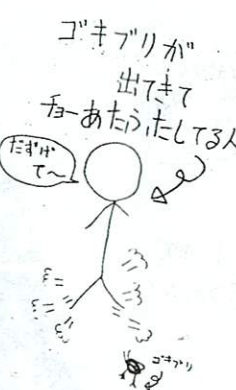 ゴキブリが
出てきて
チョーあたふたしてる人
たすけ
て〜
ゴキブリ